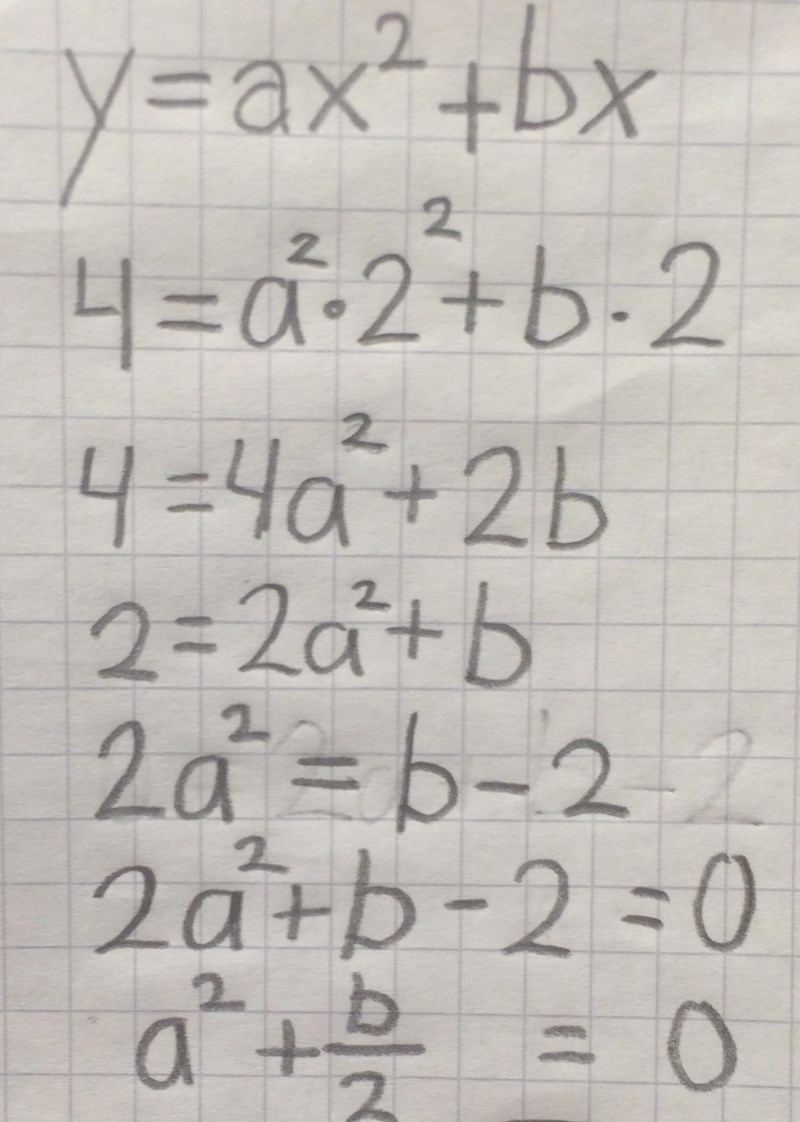 y=ax²+bx
4=a²·2²+b·2
4=4a²+2b
2=2a²+b
2a²=b-2
2a²+b-2=0
a²+b/2=0